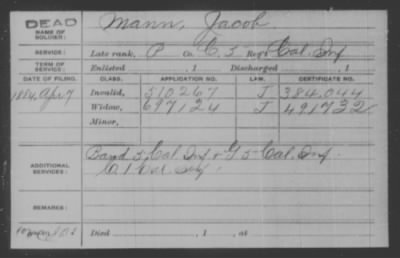 DEAD
NAME OF SOLDIER: Mann, Jacob
SERVICE: Late rank, P Co. C. 5 Reg't Cal. Inf
TERM OF SERVICE: Enlisted , 1 Discharged , 1
DATE OF FILING. CLASS. APPLICATION NO. LAW. CERTIFICATE NO.
1884, Apr 7 Invalid, 510267 J 384,044
Widow, 697124 J 491732
Minor,
ADDITIONAL SERVICES: Band 5 Cal. Inf & G 5 Cal. Inf.
C. 1
REMARKS:
Died , 1 , at